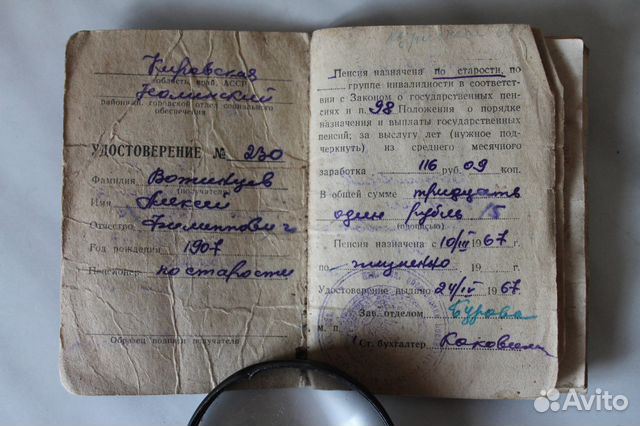 Кировская
область, край, АССР
районный, городской отдел социального
обеспечения
УДОСТОВЕРЕНИЕ № 230
Фамилия Вотинцев
(получателя)
Имя Алексей
Отчество Филиппович
Год рождения 1907
Пенсионер по старости
Образец подписи получателя
Пенсия назначена по старости, по
группе инвалидности в соответст-
вии с Законом о государственных пен-
сиях и п. 98 Положения о порядке
назначения и выплаты государственных
пенсий; за выслугу лет (нужное под-
черкнуть) из среднего месячного
заработка 116 руб. 09 коп.
В общей сумме тридцать
один рубль 15
(прописью)
Пенсия назначена с 10/III 1967 г.
по пожизненно 19 г.
Удостоверение выдано 24/IV 1967
Зав. отделом Бурова
м. п.
Ст. бухгалтер
Avito